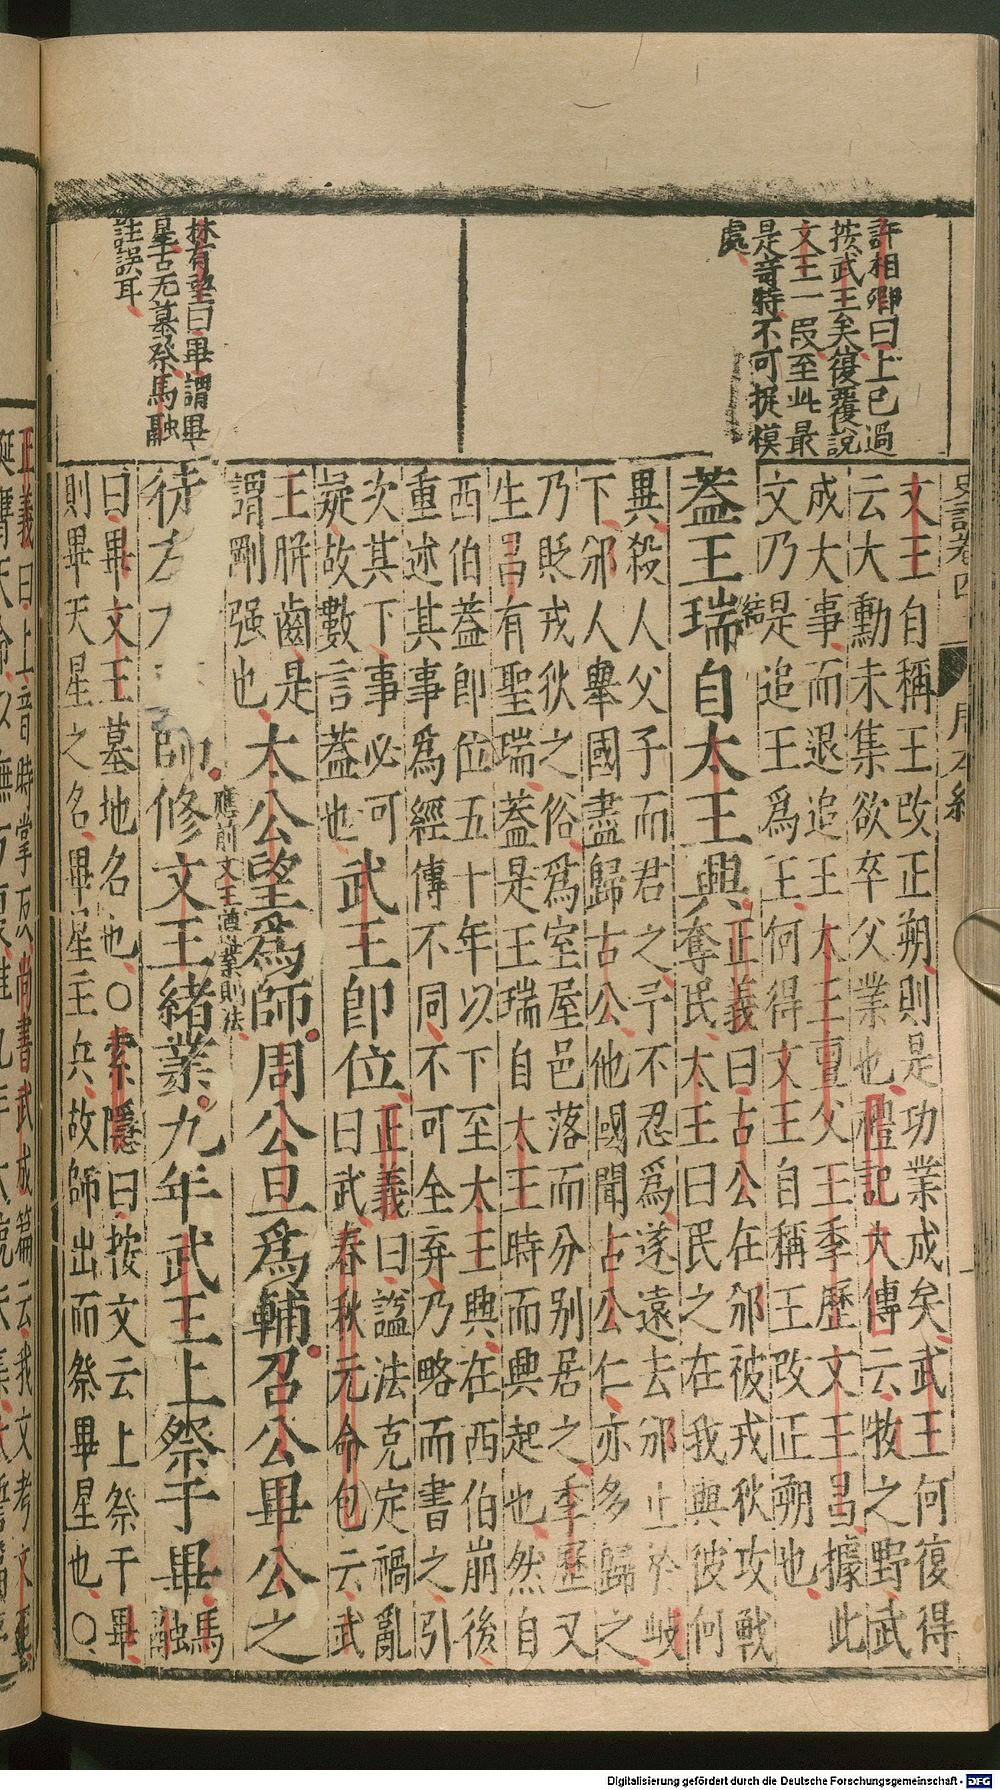 許相卿曰上已過
按武王矣復覆說
文王一段至此最
是奇特不可捉模
處
林有望曰畢謂畢
星古无墓祭馬融
註誤耳
史記卷四
周本紀
文王自稱王改正朔則是功業成矣武王何復得
云大勳未集欲卒父業也禮記大傳云牧之野武
成大事而退追王太王亶父王季歷文王昌據此
文乃是追王爲王何得文王自稱王改正朔也
蓋王瑞自太王興
正義曰古公在邠被戎狄攻戰
奪民太王曰民之在我與彼何
異殺人父子而君之予不忍爲遂遠去邠止於岐
下邠人舉國盡歸古公他國聞古公仁亦多歸之
乃貶戎狄之俗爲室屋邑落而分别居之季歷又
生昌有聖瑞蓋是王瑞自太王時而興起也然自
西伯蓋即位五十年以下至太王興在西伯崩後
重述其事爲經傳不同不可全弃乃略而書之引
次其下事必可
疑故數言蓋也
武王即位
正義曰諡法克定禍亂
曰武春秋元命包云武
王駢齒是
謂剛强也
太公望爲師周公旦爲輔召公畢公之
應前文王遵業則法
徒左
師修文王緒業九年武王上祭于畢
馬
融
曰畢文王墓地名也○索隱曰按文云上祭于畢
則畢天星之名畢星主兵故師出而祭畢星也○
正義曰上音時掌反尚書武成篇云我文考文王